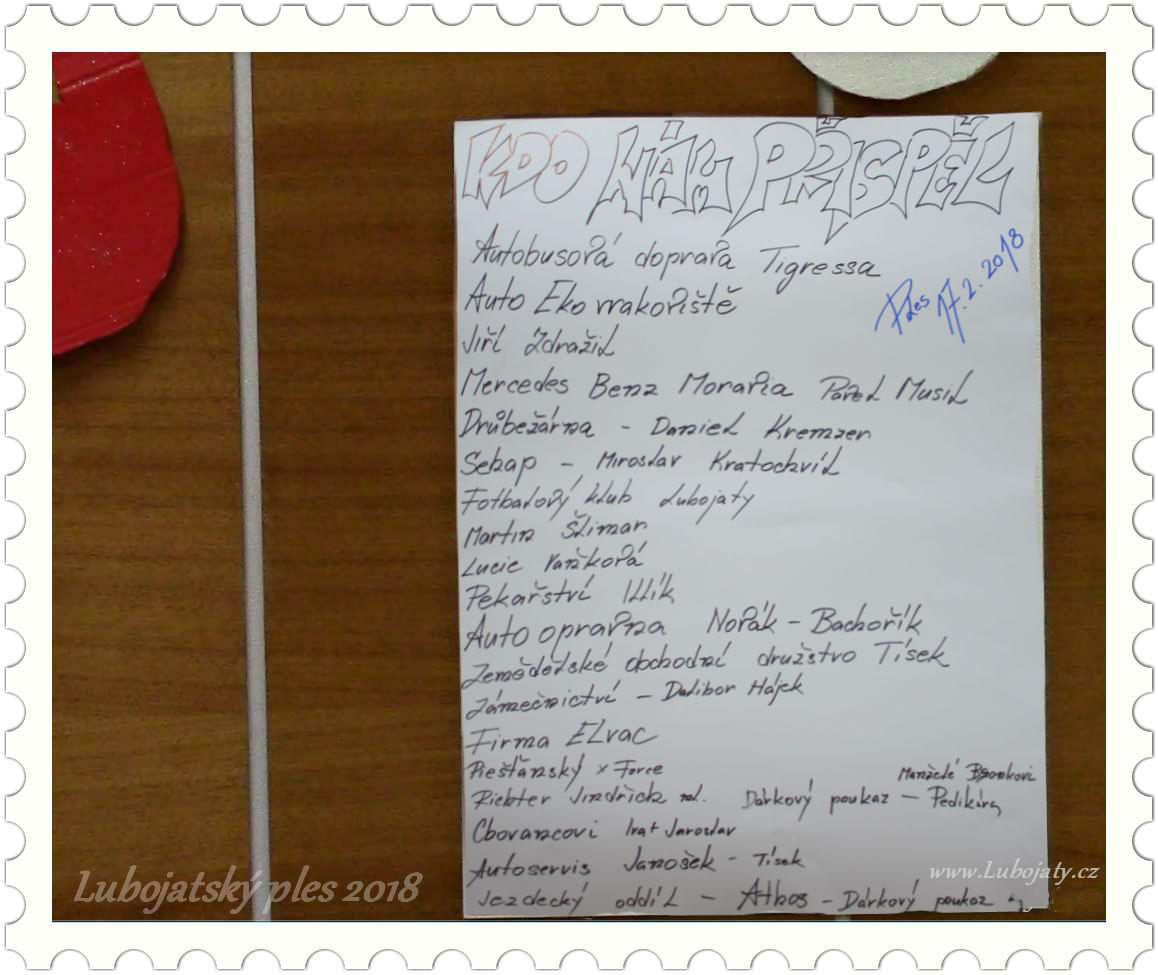 KDO NÁM PŘISPĚL
Ples 17.2.2018
Autobusová doprava Tigressa
Auto Eko vrakoviště
Jiří Zdražil
Mercedes Benz Moravia Pavel Musil
Drůbežárna - Daniel Kremzer
Sehap - Miroslav Kratochvíl
Fotbalový klub Lubojaty
Martin Šlimar
Lucie Vaňková
Pekařství Illík
Auto opravna Novák - Bachořík
Zemědělské obchodní družstvo Tísek
Zámečnictví - Dalibor Hájek
Firma ELvac
Piešťanský x Force
Manželé
Richter Jindřich ml. Dárkový poukaz - Pedikúra
Chovancovi Jaroslav
Autoservis Janošek - Tísek
Jezdecký oddíl - Athos - Dárkový poukaz
Lubojatský ples 2018
www.Lubojaty.cz